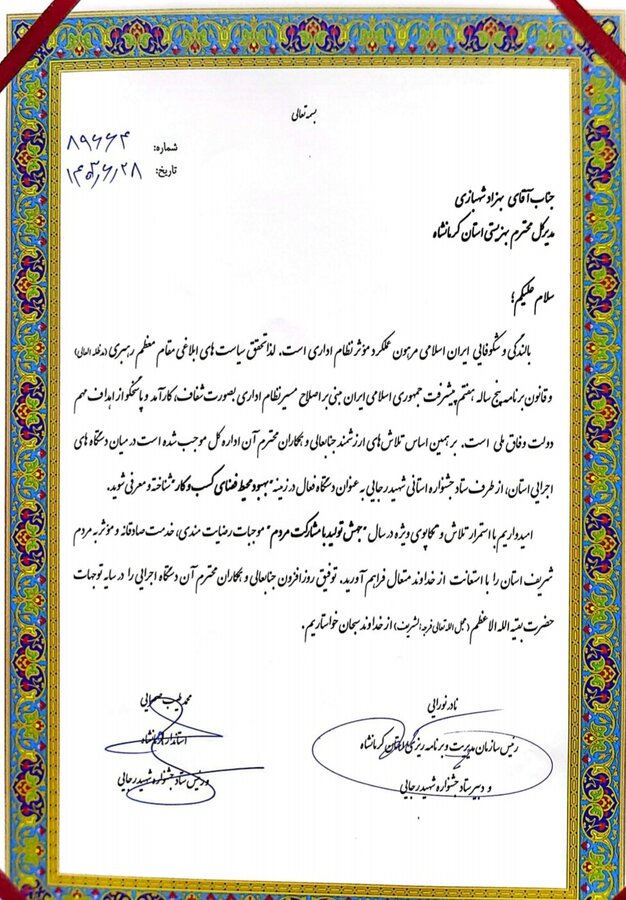 بسمه تعالی
شماره: ۸۹۶۶۴
تاریخ: ۱۴۰۳٫۶٫۲۸
جناب آقای بهزاد شهبازی
مدیرکل محترم بهزیستی استان کرمانشاه
سلام علیکم؛
بالندگی و شکوفایی ایران اسلامی مرهون عملکرد مؤثر نظام اداری است. لذا تحقق سیاست های ابلاغی مقام معظم رهبری (مدظله العالی)
و قانون برنامه پنج ساله هفتم پیشرفت جمهوری اسلامی ایران مبنی بر اصلاح مسیر نظام اداری بصورت شفاف، کارآمد و پاسخگو از اهداف مهم
دولت وفاق ملی است. بر همین اساس تلاش های ارزشمند جنابعالی و همکاران محترم آن اداره کل موجب شده است در میان دستگاه های
اجرایی استان، از طرف ستاد جشنواره استانی شهید رجایی به عنوان دستگاه فعال در زمینه "بهبود محیط فضای کسب و کار" شناخته و معرفی شوید.
امیدواریم با استمرار تلاش و تکاپوی ویژه در سال "جهش تولید با مشارکت مردم" موجبات رضایت مندی، خدمت صادقانه و مؤثر به مردم
شریف استان را با استعانت از خداوند متعال فراهم آورید. توفیق روزافزون جنابعالی و همکاران محترم آن دستگاه اجرایی را در سایه توجهات
حضرت بقیه الله الاعظم (عجل الله تعالی فرجه الشریف) از خداوند سبحان خواستاریم.
نادر نورایی
رئیس سازمان مدیریت و برنامه ریزی استان کرمانشاه
و دبیر ستاد جشنواره شهید رجایی
محمد طیب صحرایی
استاندار کرمانشاه
و رئیس ستاد جشنواره شهید رجایی